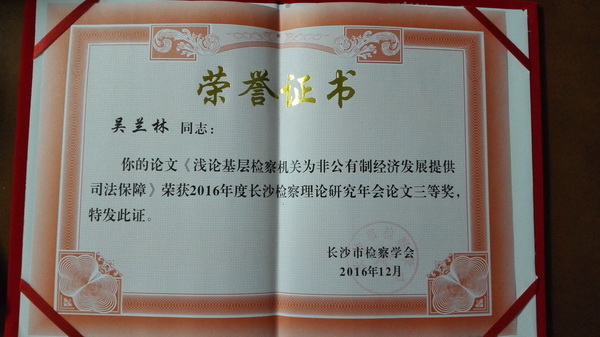 荣誉证书
吴兰林 同志：
你的论文《浅论基层检察机关为非公有制经济发展提供
司法保障》荣获2016年度长沙检察理论研究年会论文三等奖，
特发此证。
长沙市检察学会
2016年12月